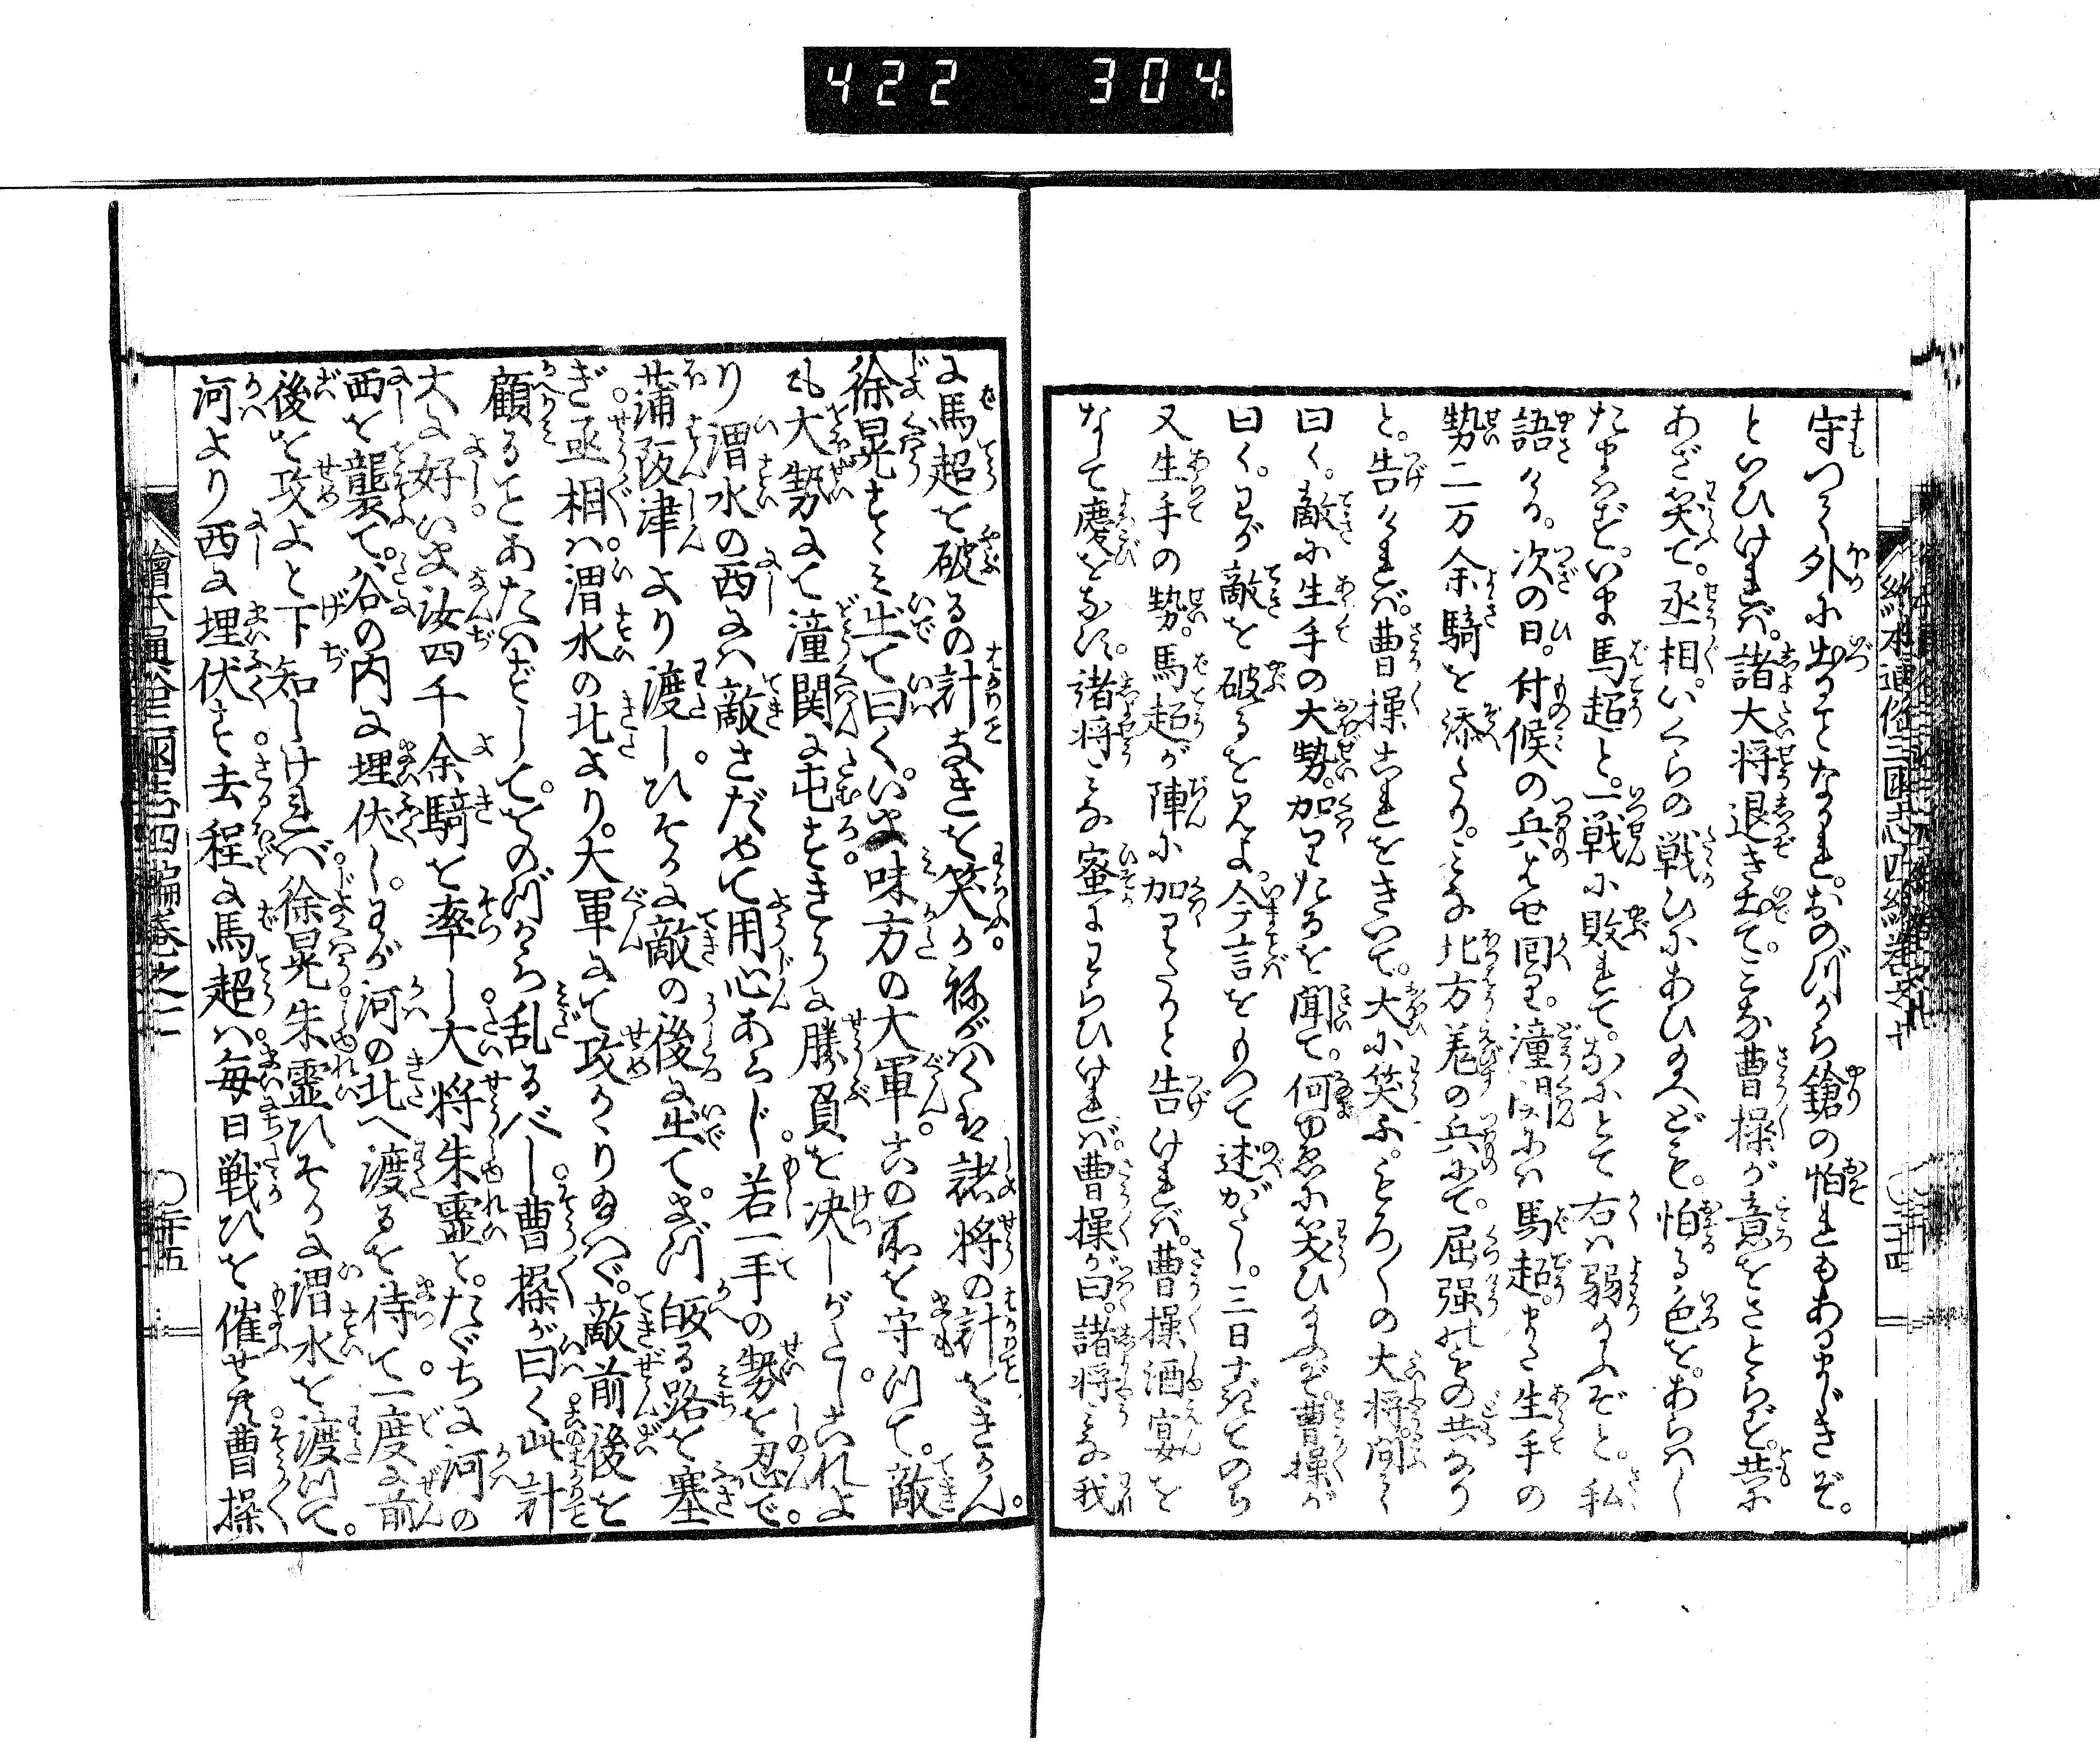 422 304
守つく外に出ることなかれ。おのづから鎗の怕れもあるまじきぞ。
といひければ。諸大将退き出て。こな曹操が意をさとらず。共に
あざ笑て。丞相。いくらの戦ひにあひ給へども。怕る色を。あらはし
たまはず。いま馬超と。一戦に敗れて。かにとて右は弱給ふぞと。私
語ける。次の日。付候の兵はせ回り。潼関には馬超。また生手の
勢二万余騎を添たり。みな北方羌の兵にて。屈強のもの共なり
と。告ければ。曹操これをきいて。大に笑ふ。もろ〱の大将。聞て
曰く。敵に生手の大勢。加りたるを聞て。何ゆゑに笑ひ給ふぞ。曹操が
曰く。わが敵を破るを見よ。今言をもつて述がたし。三日すぎてのち
又生手の勢。馬超が陣に加りたりと告ければ。曹操酒宴を
なして慶をなす。諸将みな蜜にわらひければ。曹操が曰。諸将みな我
に馬超を破るの計なきを笑ふ。ねがはくは諸将の計をきかん。
徐晃すゝみ出て曰く。いま味方の大軍。この所を守つて。敵
も大勢にて潼関に屯す。きうに勝負を決しがたし。これよ
り渭水の西には敵さだめて用心あらじ。若一手の勢を忍で。
蒲阪津より渡し。ひそかに敵の後に出て。まづ皈る路を塞
ぎ。丞相は渭水の北より。大軍にて攻かゝり給へば。敵前後を
顧ることあたはずして。おのづから乱るべし。曹操が曰く此計
大に好。いま汝四千余騎を率し。大将朱霊と。たゞちに河の
西を襲て。谷の内に埋伏し。わが河の北へ渡るを待て。一度に前
後を攻よと下知しければ。徐晃朱霊ひそかに渭水を渡つて。
河より西に埋伏す。去程に馬超は。毎日戦ひを催せども。曹操
繪本通俗三國志四編巻之二
〇二十五